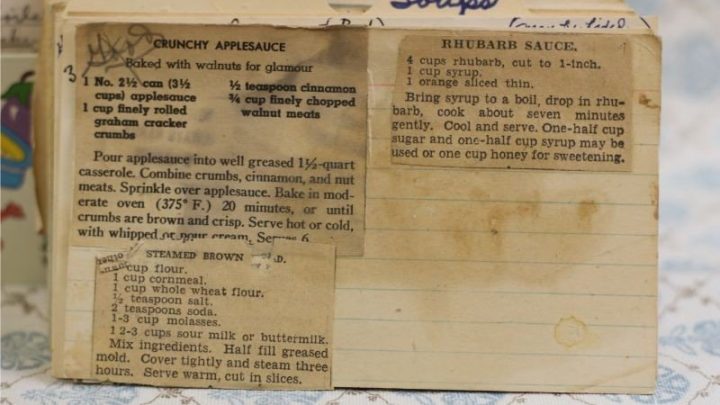 Soups
3
CRUNCHY APPLESAUCE
Baked with walnuts for glamour
1 No. 2½ can (3½
cups) applesauce
1 cup finely rolled
graham cracker
crumbs
½ teaspoon cinnamon
¾ cup finely chopped
walnut meats
Pour applesauce into well greased 1½-quart
casserole. Combine crumbs, cinnamon, and nut
meats. Sprinkle over applesauce. Bake in mod-
erate oven (375° F.) 20 minutes, or until
crumbs are brown and crisp. Serve hot or cold,
with whipped or pour cream. Serves 6.
RHUBARB SAUCE.
4 cups rhubarb, cut to 1-inch.
1 cup syrup.
1 orange sliced thin.
Bring syrup to a boil, drop in rhu-
barb, cook about seven minutes
gently. Cool and serve. One-half cup
sugar and one-half cup syrup may be
used or one cup honey for sweetening.
STEAMED BROWN
cup flour.
1 cup cornmeal.
1 cup whole wheat flour.
½ teaspoon salt.
2 teaspoons soda.
1-3 cup molasses.
1 2-3 cups sour milk or buttermilk.
Mix ingredients. Half fill greased
mold. Cover tightly and steam three
hours. Serve warm, cut in slices.